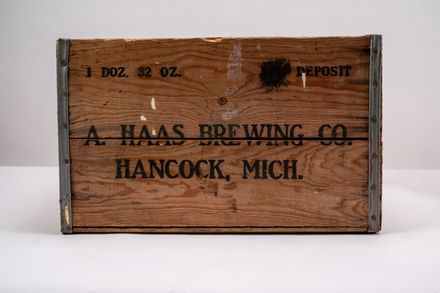 1 DOZ. 32 OZ. DEPOSIT
A. HAAS BREWING CO.
HANCOCK, MICH.